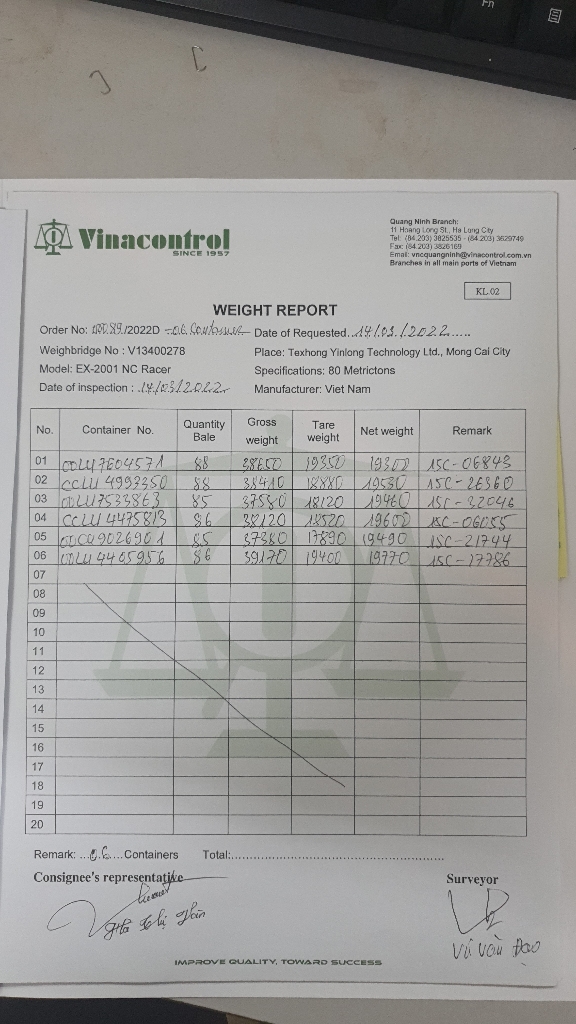 Fn
Vinacontrol
SINCE 1957
Quang Ninh Branch:
11 Hoang Long St., Ha Long City
Tel: (84.203) 3825535 - (84.203) 3629749
Fax: (84.203) 3826169
Email: vncquangninh@vinacontrol.com.vn
Branches in all main ports of Vietnam
KL 02
WEIGHT REPORT
Order No: /2022D - 06 Container Date of Requested...14/03/2022.....
Weighbridge No : V13400278 Place: Texhong Yinlong Technology Ltd., Mong Cai City
Model: EX-2001 NC Racer Specifications: 80 Metrictons
Date of inspection : 14/03/2022 Manufacturer: Viet Nam
No. Container No. Quantity Bale Gross weight Tare weight Net weight Remark
01 88 38650 19350 19300 15C-06843
02 CCLU 4993350 88 38410 18880 19530 15C-26360
03 85 37580 18120 19460 15C-32046
04 CCLU 4475813 86 38120 18520 19600 15C-06055
05 85 37380 17890 19490 15C-21744
06 86 39170 19400 19770 15C-17786
07
08
09
10
11
12
13
14
15
16
17
18
19
20
Remark: ...06....Containers Total:
Consignee's representative Surveyor
Vũ Văn Đạo
IMPROVE QUALITY, TOWARD SUCCESS